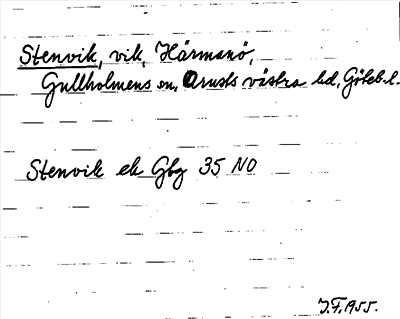 Stenvik, vik, Härmanö,
Gullholmens sn, Orusts västra hd, Göteb. l.
Stenvik ek Gbg 35 NO
J.F. 1955.